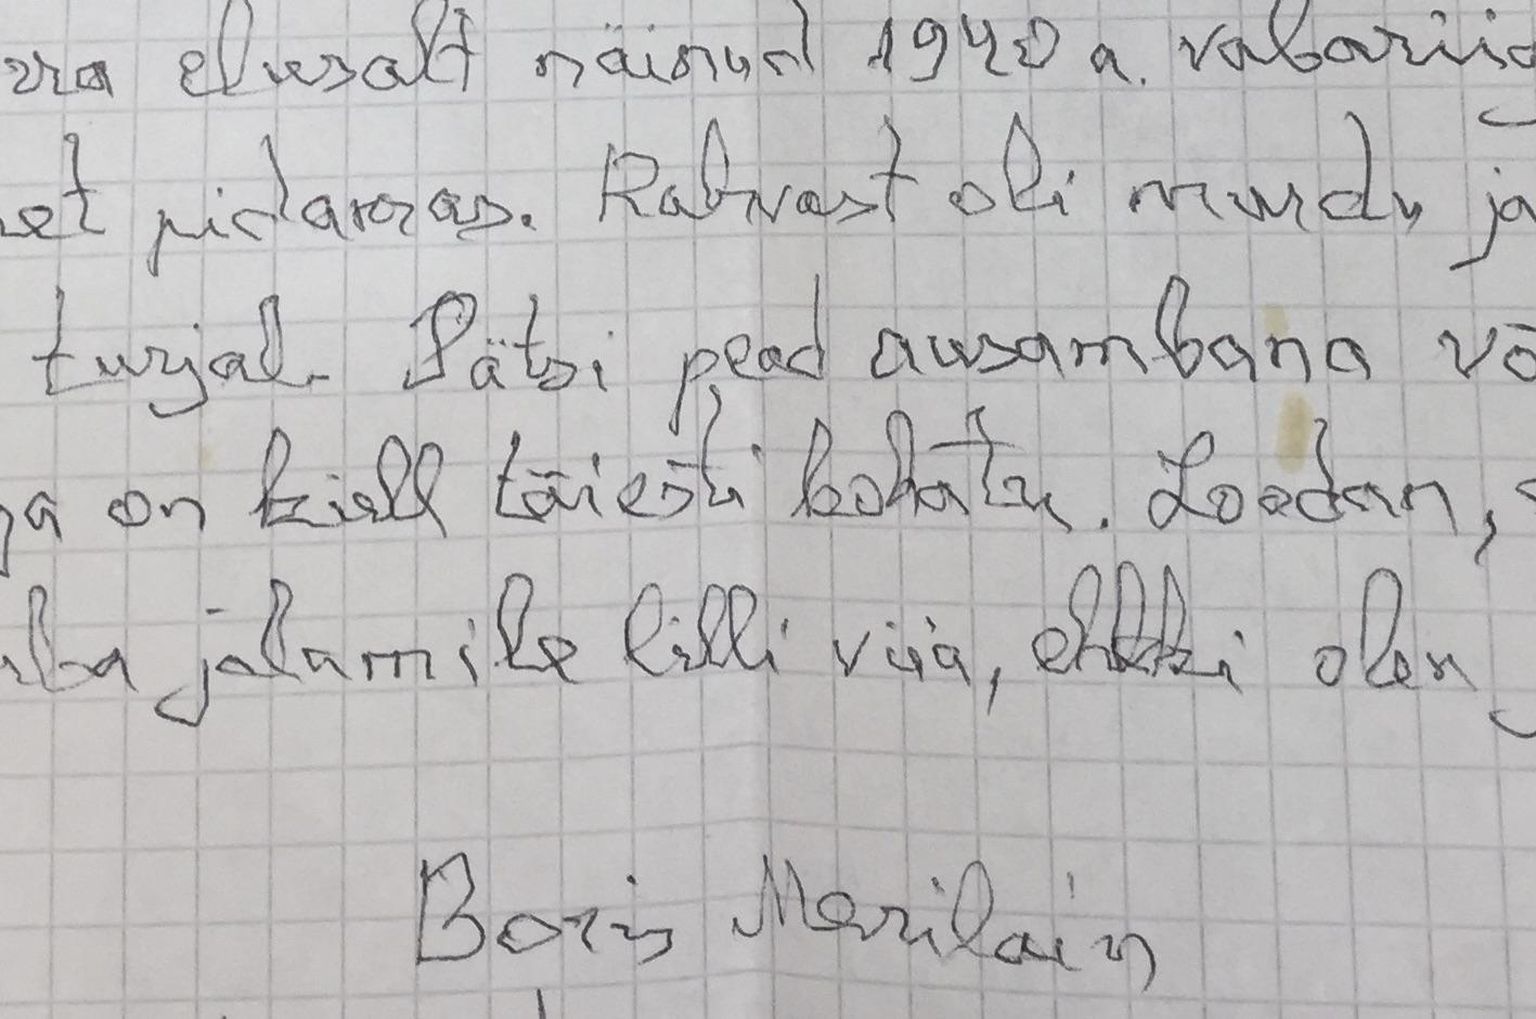 elusalt näinud 1940 a. vabariig
et pidamas. Rahvast oli murdu ja
turjal. Pätsi pead ausambana võ
on küll täiesti kohatu. Loodan,
jalamile lilli viia, ehkki olen
Boris Merilain